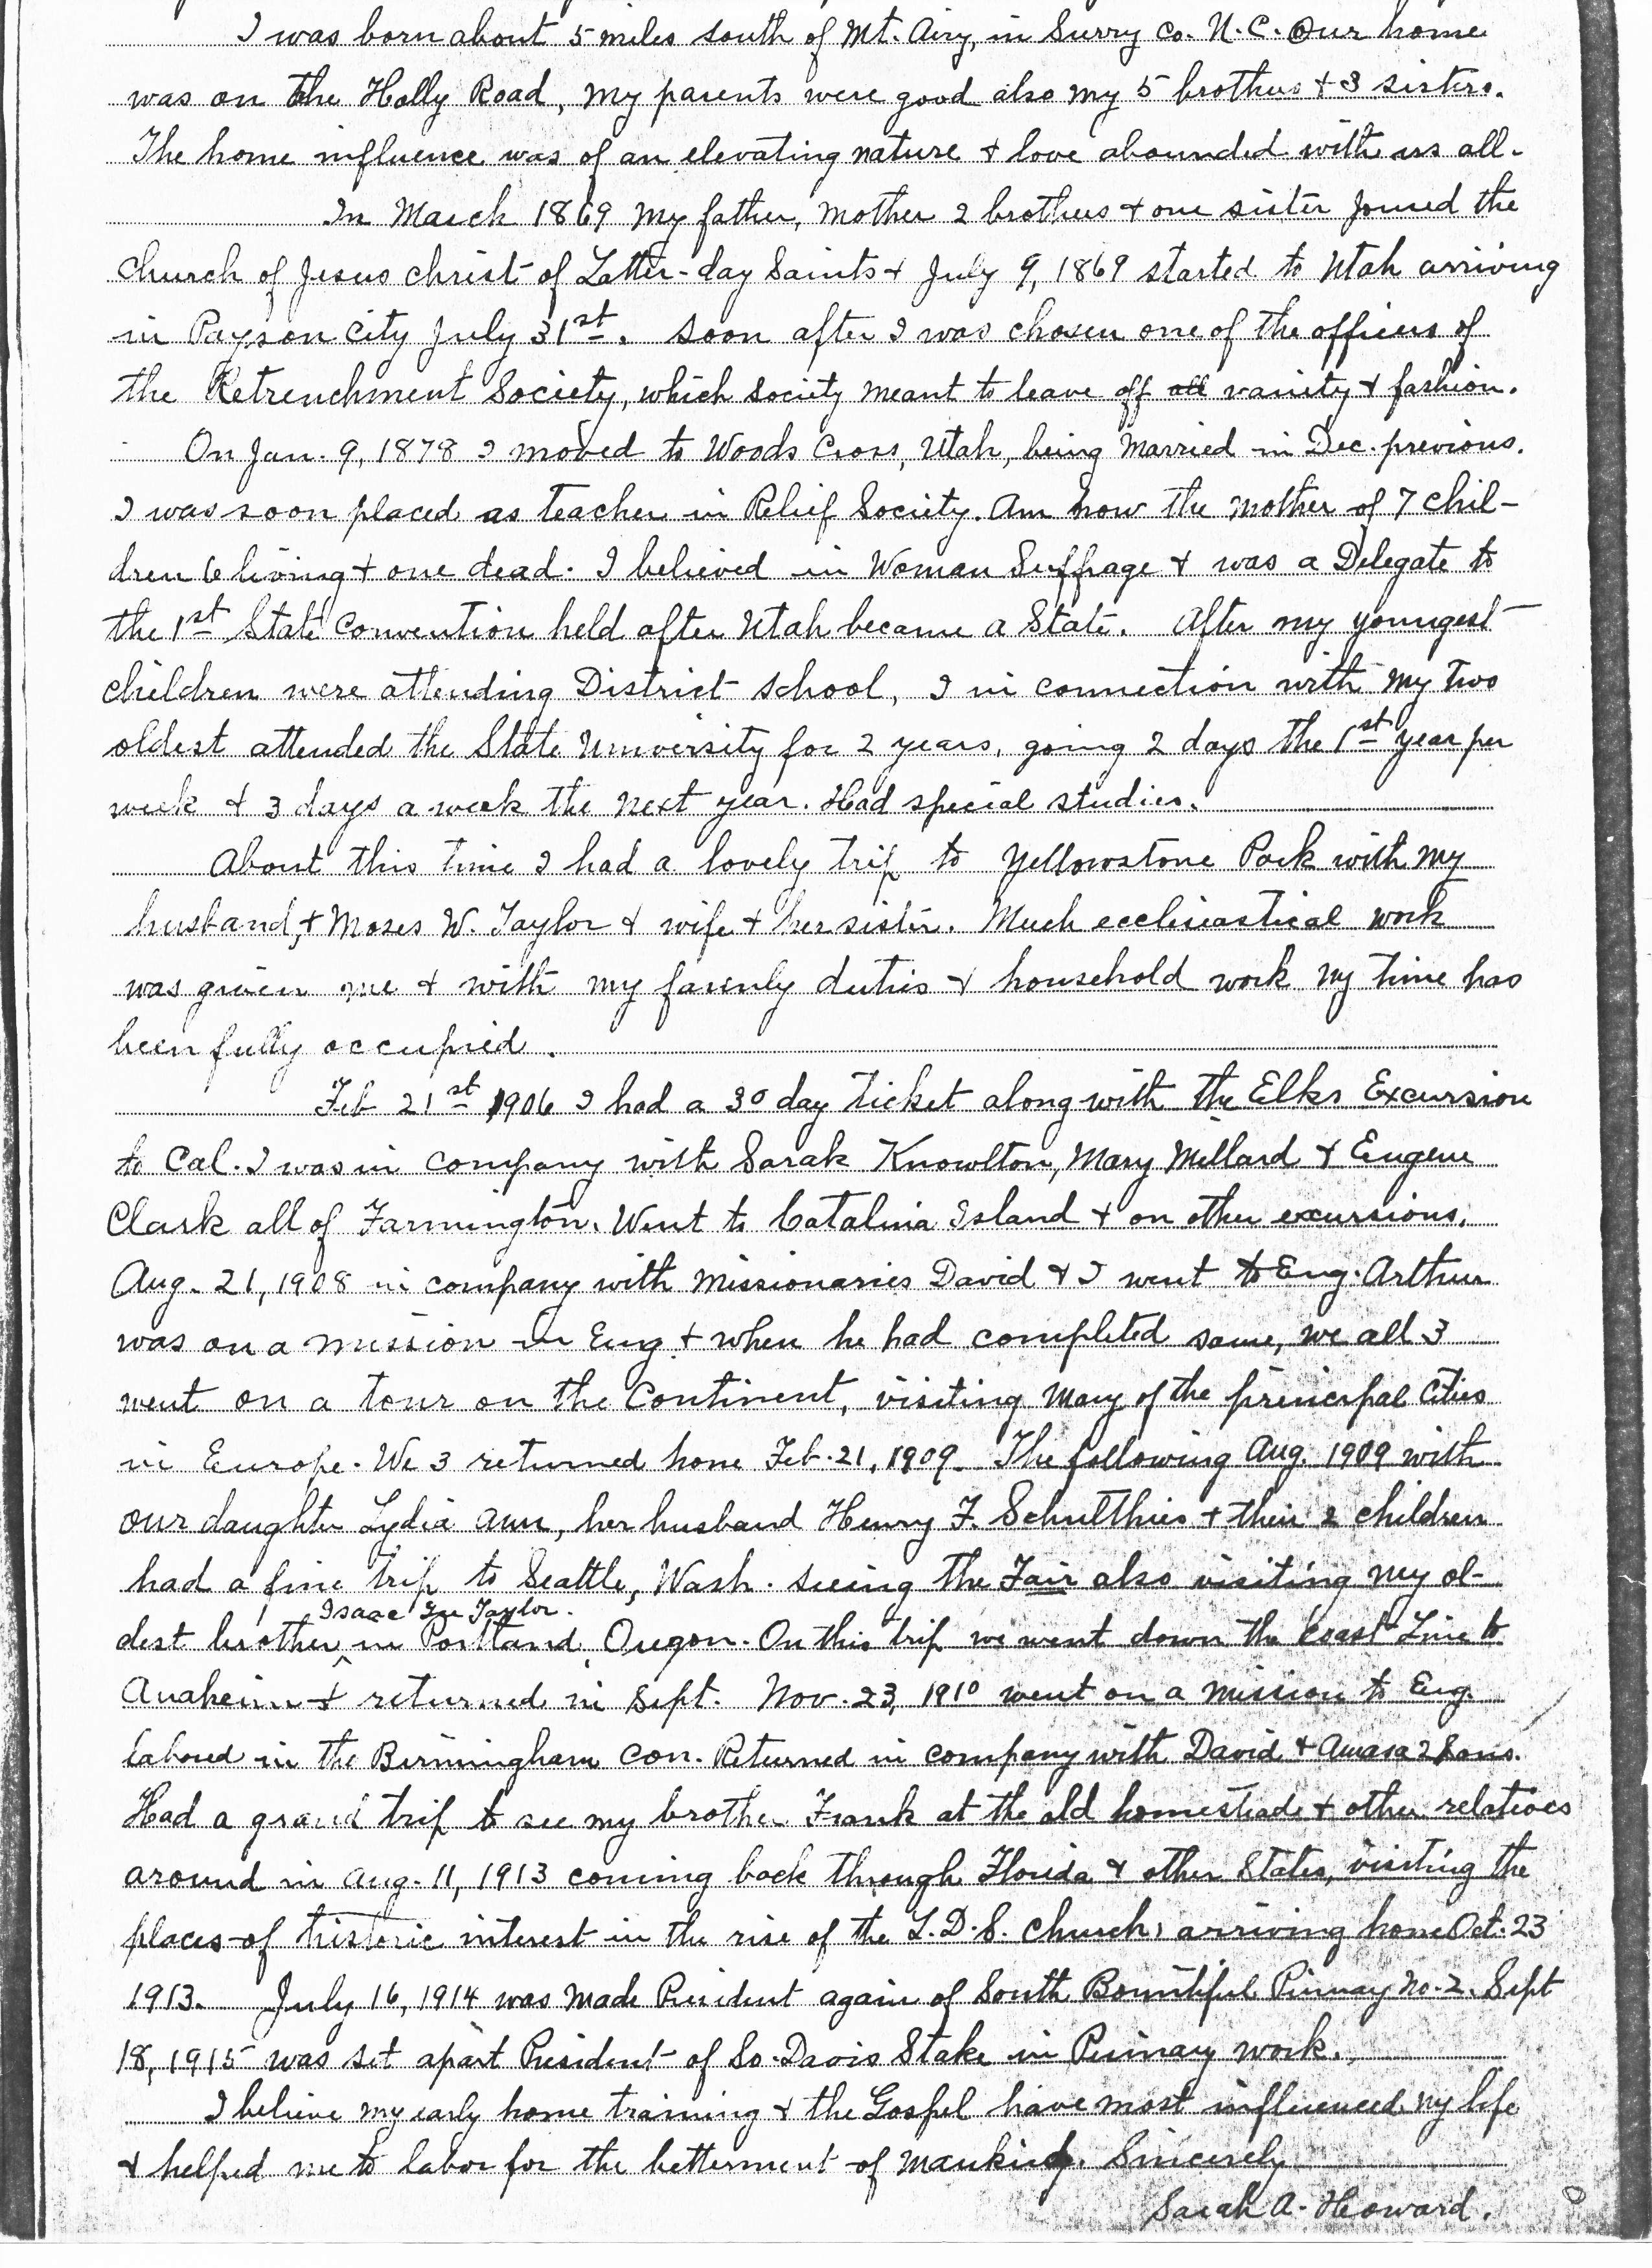 I was born about 5 miles south of Mt. Airy, in Surry Co. N.C. Our home
was on the Holly Road, my parents were good also my 5 brothers + 3 sisters.
The home influence was of an elevating nature + love abounded with us all.
In March 1869 my father, mother 2 brothers + one sister joined the
Church of Jesus Christ of Latter-day Saints + July 9, 1869 started to Utah arriving
in Payson City July 31st. Soon after I was chosen one of the officers of
the Retrenchment Society, which society meant to leave off all vanity + fashion.
On Jan. 9, 1878 I moved to Woods Cross, Utah, being married in Dec. previous.
I was soon placed as teacher in Relief Society. Am now the mother of 7 chil-
dren 6 living + one dead. I believed in Woman Suffrage + was a Delegate to
the 1st State Convention held after Utah became a State. After my youngest
children were attending District school, I in connection with my two
oldest attended the State University for 2 years, going 2 days the 1st year per
week + 3 days a week the next year. Had special studies.
About this time I had a lovely trip to Yellowstone Park with my
husband, + Moses W. Taylor + wife + her sister. Much eccliestical work
was given me + with my family duties + household work my time has
been fully occupied.
Feb 21st 1906 I had a 30 day ticket along with the Elks Excursion
to Cal. I was in company with Sarah Knowlton, Mary Millard + Eugene
Clark all of Farmington. Went to Catalina Island + on other excursions.
Aug. 21, 1908 in company with missionaries David + I went to Eng. Arthur
was on a mission in Eng. + when he had completed same, we all 3
went on a tour on the Continent, visiting many of the principal cities
in Europe. We 3 returned home Feb. 21, 1909. The following Aug. 1909 with
our daughter Lydia Ann, her husband Henry F. Schulthies + their 2 children
had a fine trip to Seattle, Wash. seeing the Fair also visiting my ol-
Isaac Taylor.
dest brother ^ in Portland, Oregon. On this trip we went down the coast Line to
Anaheim + returned in Sept. Nov. 23, 1910 went on a mission to Eng.
labored in the Birmingham Con. Returned in company with David + Amasa 2 sons.
Had a grand trip to see my brother Frank at the old homestead + other relatives
around in Aug. 11, 1913 coming back through Florida + other States, visiting the
places of historic interest in the rise of the L.D.S. Church, arriving home Oct. 23
1913. July 16, 1914 was made President again of South Bountiful Primay No. 2. Sept
18, 1915 was set apart President of So. Davis Stake in Primary work.
I believe my early home training + the Gospel have most influenced my life
+ helped me to labor for the betterment of mankind. Sincerely
Sarah A. Howard.